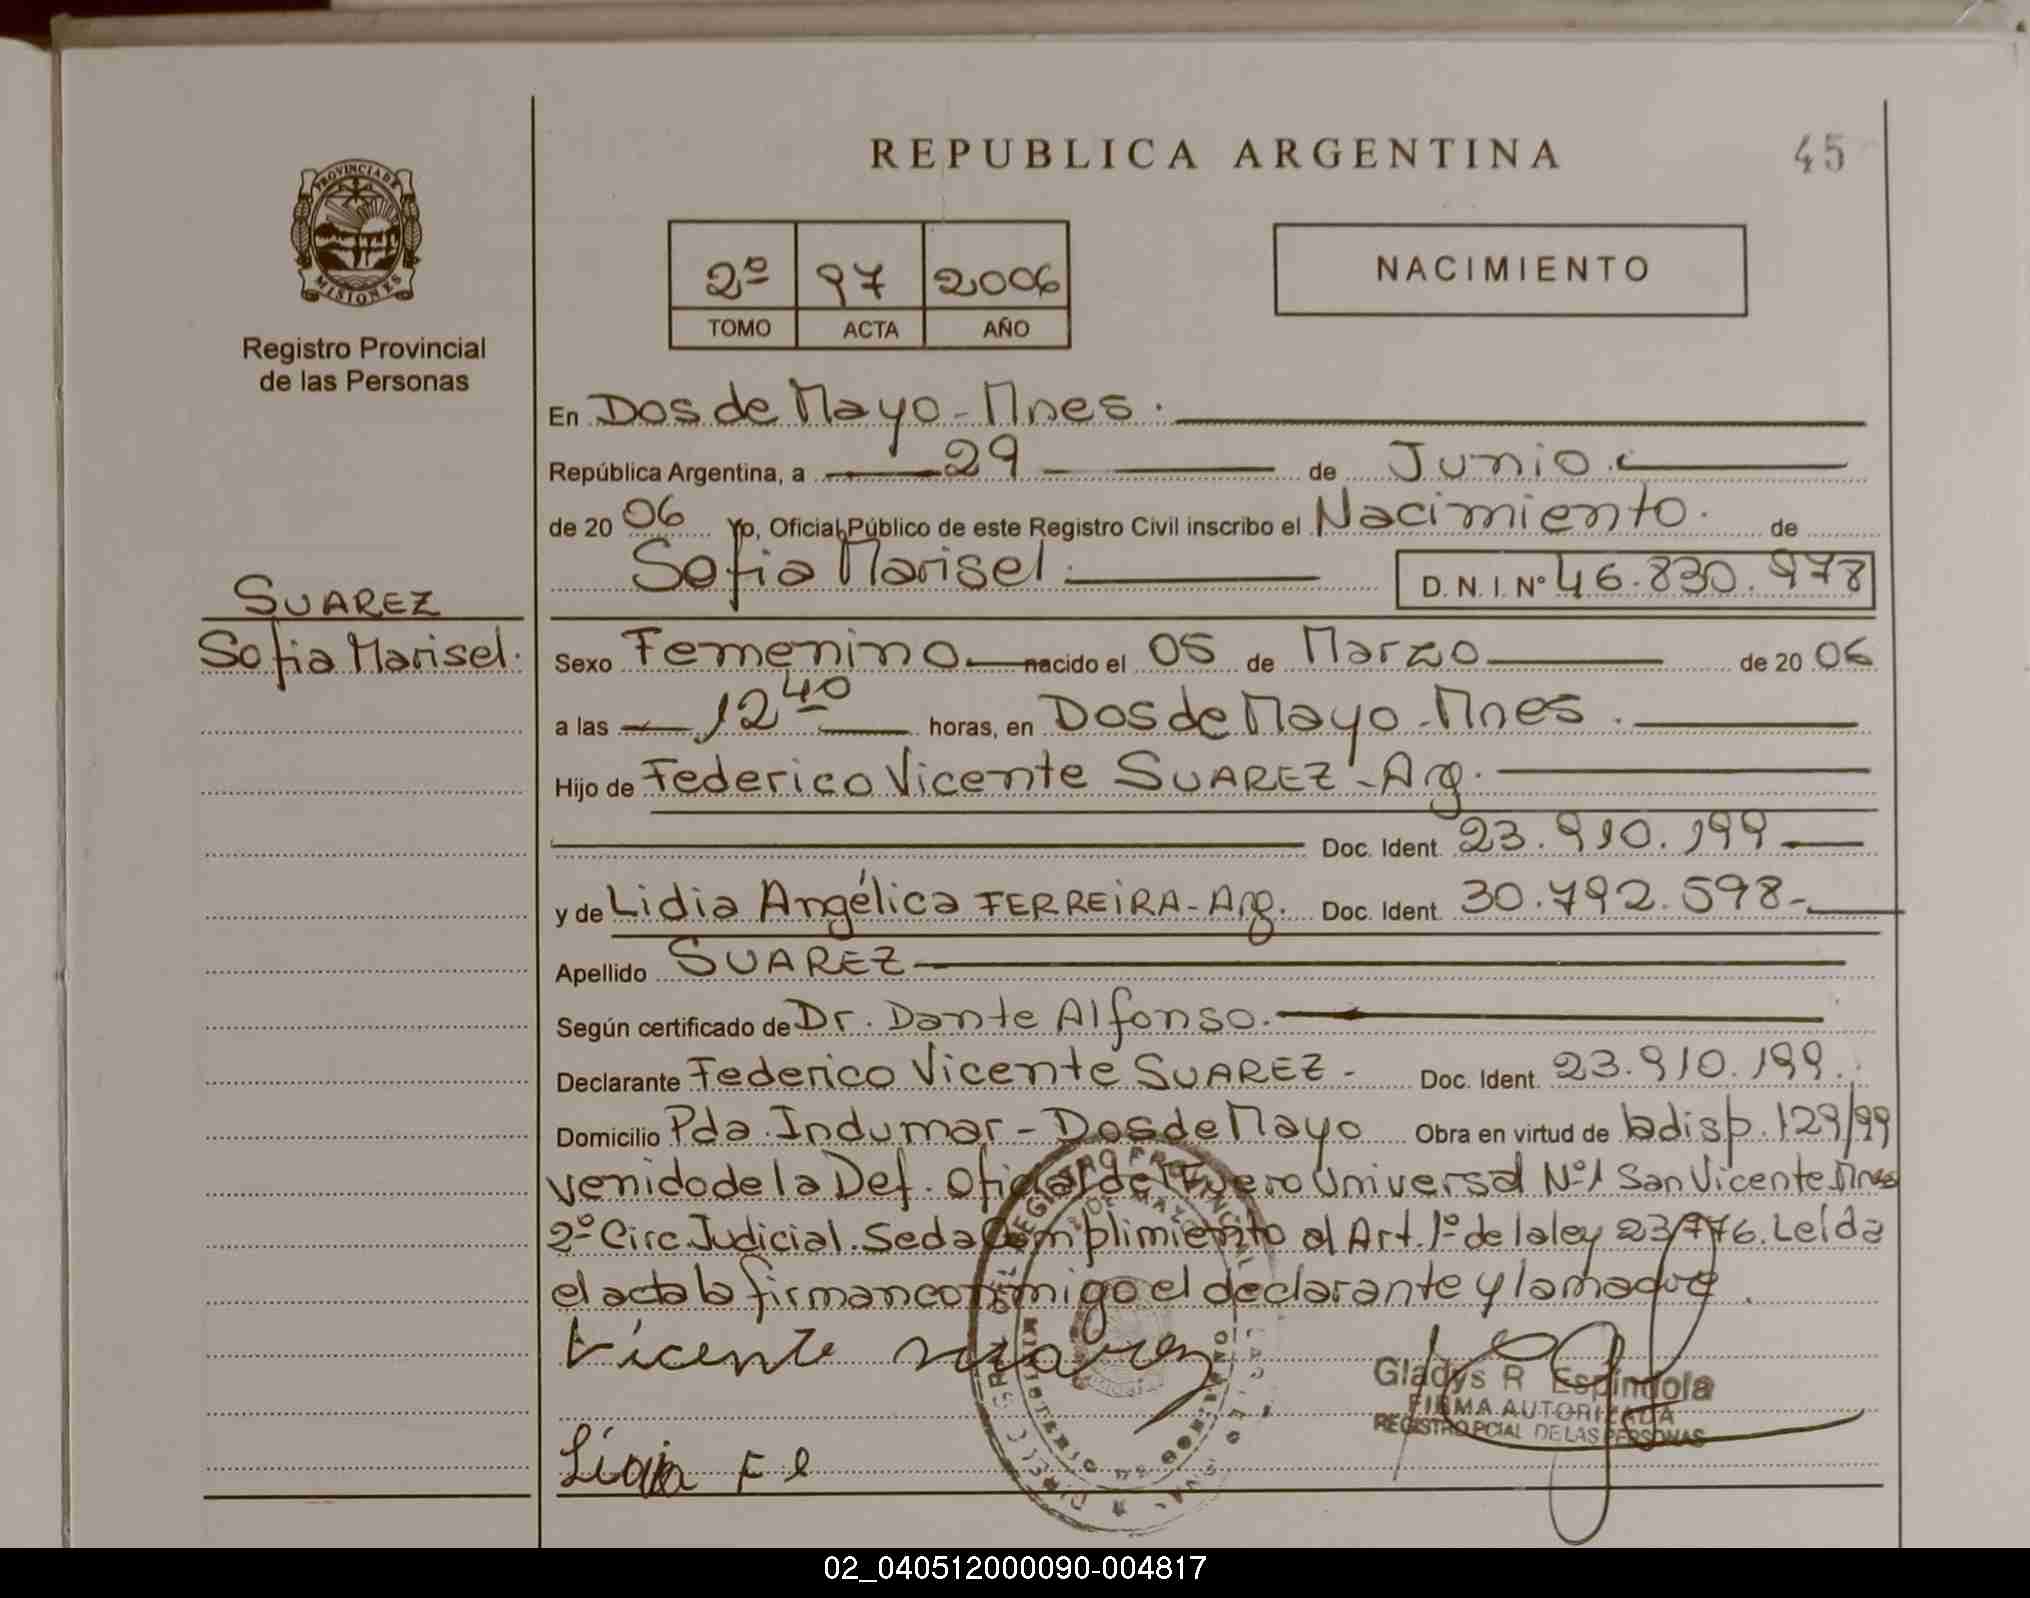 REPUBLICA ARGENTINA
45
PROVINCIA DE
MISIONES
Registro Provincial
de las Personas
2º 97 2006
TOMO ACTA AÑO
NACIMIENTO
En Dos de Mayo - Mnes.
República Argentina, a 29 de Junio.
de 20 06 Yo, Oficial Público de este Registro Civil inscribo el Nacimiento. de
Sofia Marisel. D. N. I. Nº 46.830.978
SUAREZ
Sofia Marisel.
Sexo Femenino nacido el 05 de Marzo de 20 06
a las 12 40 horas, en Dos de Mayo - Mnes.
Hijo de Federico Vicente SUAREZ - Arg.
Doc. Ident. 23.910.199
y de Lidia Angélica FERREIRA - Arg. Doc. Ident. 30.792.598-
Apellido SUAREZ
Según certificado de Dr. Dante Alfonso.
Declarante Federico Vicente SUAREZ - Doc. Ident. 23.910.199.
Domicilio Pda. Indumar - Dos de Mayo Obra en virtud de la disp. 129/99
venido de la Def. Oficial del Fuero Universal Nº1 San Vicente Mnes
2º Circ. Judicial. Se da Cumplimiento al Art. 1º de la ley 23776. Leída
el acta la firman conmigo el declarante y la madre.
Vicente Suarez
Gladys R Espindola
FIRMA AUTORIZADA
REGISTRO PCIAL DE LAS PERSONAS
Lidia F
02_040512000090-004817